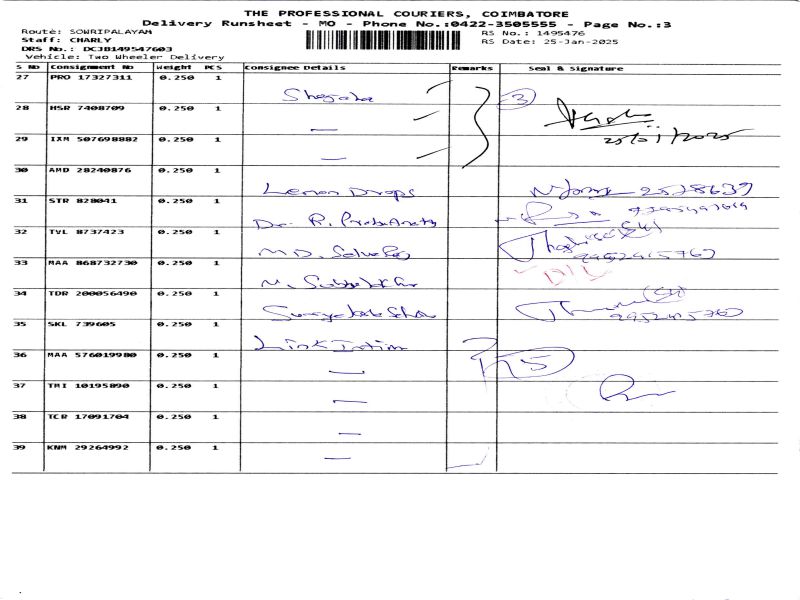 THE PROFESSIONAL COURIERS, COIMBATORE
Delivery Runsheet - MO - Phone No.:0422-3505555 - Page No.:3
Route: SOWRIPALAYAM
RS No.: 1495476
Staff: CHARLY
RS Date: 25-Jan-2025
DRS No.: DCJB149547603
Vehicle: Two Wheeler Delivery
S No Consignment No Weight PCS Consignee Details Remarks Seal & Signature
27 PRO 17327311 0.250 1
28 HSR 7408709 0.250 1 3
29 IXM 507698882 0.250 1 25/01/2025
30 AMD 28240876 0.250 1 Lemon Drops
31 STR 828041 0.250 1 Dr. R.
32 TVL 8737423 0.250 1 M.D.
33 MAA 868732730 0.250 1 M.
34 TDR 200056490 0.250 1
35 SKL 739605 0.250 1 Link Intime
36 MAA 576019980 0.250 1 5
37 TMI 10195890 0.250 1
38 TCR 17091704 0.250 1
39 KNM 29264992 0.250 1